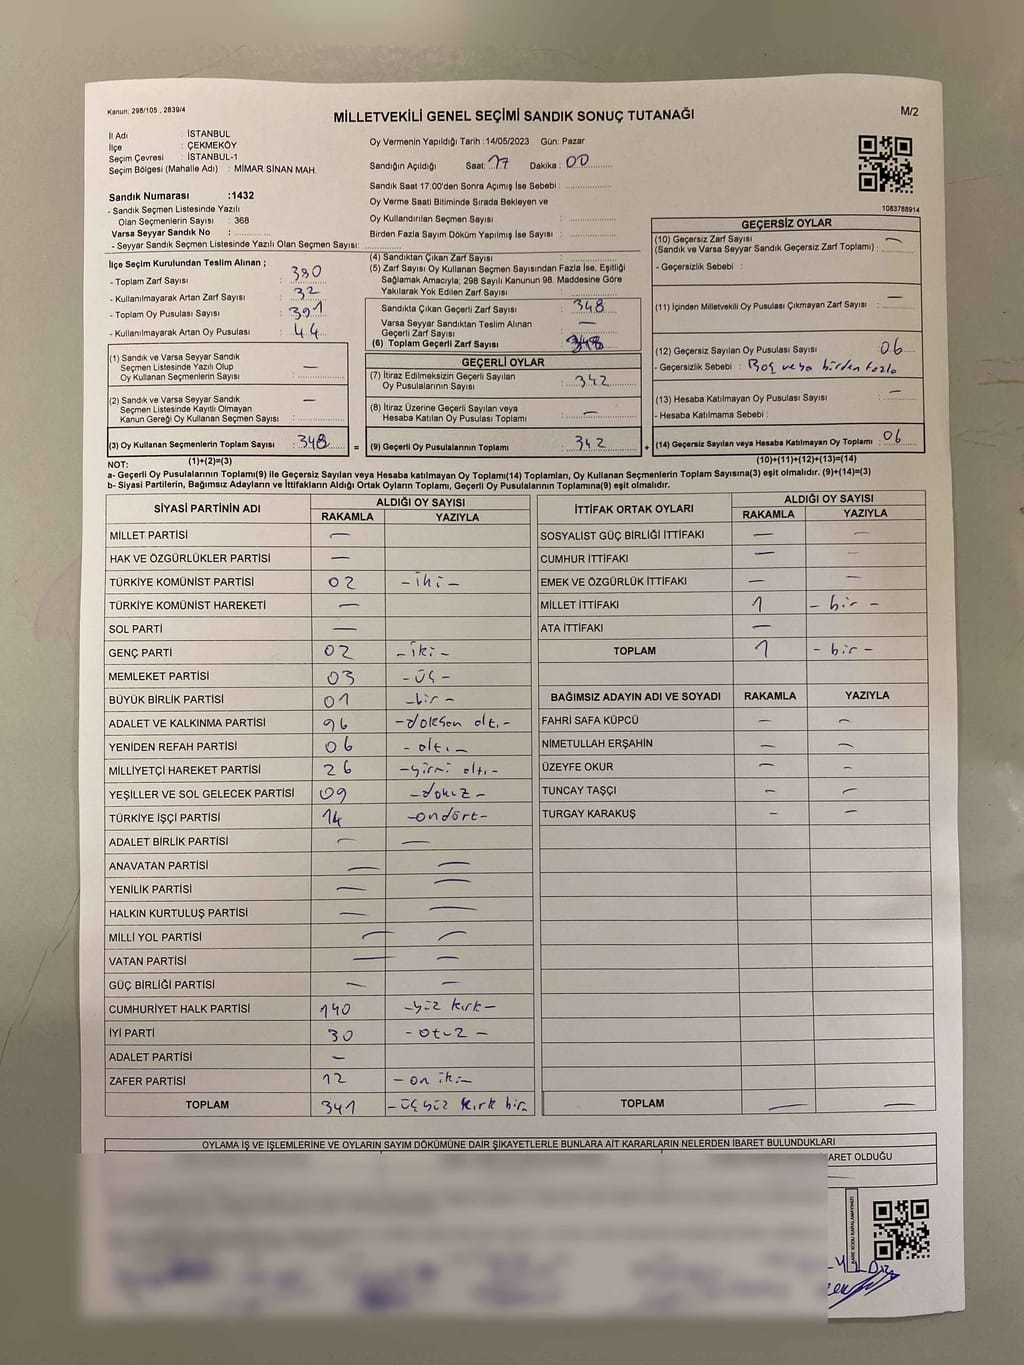 Kanun: 298/105 , 2839/4
MİLLETVEKİLİ GENEL SEÇİMİ SANDIK SONUÇ TUTANAĞI
M/2
İl Adı : İSTANBUL
İlçe : ÇEKMEKÖY
Seçim Çevresi : İSTANBUL-1
Seçim Bölgesi (Mahalle Adı) : MİMAR SİNAN MAH.
Sandık Numarası :1432
- Sandık Seçmen Listesinde Yazılı
Olan Seçmenlerin Sayısı : 368
Varsa Seyyar Sandık No :
- Seyyar Sandık Seçmen Listesinde Yazılı Olan Seçmen Sayısı:
Oy Vermenin Yapıldığı Tarih :14/05/2023 Gün: Pazar
Sandığın Açıldığı Saat: 17 Dakika : 00
Sandık Saat 17:00'den Sonra Açımış İse Sebebi :
Oy Verme Saati Bitiminde Sırada Bekleyen ve
Oy Kullandırılan Seçmen Sayısı :
Birden Fazla Sayım Döküm Yapılmış İse Sayısı :
1083788914
İlçe Seçim Kurulundan Teslim Alınan ;
- Toplam Zarf Sayısı : 380
- Kullanılmayarak Artan Zarf Sayısı : 32
- Toplam Oy Pusulası Sayısı : 391
- Kullanılmayarak Artan Oy Pusulası : 44
(1) Sandık ve Varsa Seyyar Sandık
Seçmen Listesinde Yazılı Olup
Oy Kullanan Seçmenlerin Sayısı : —
(2) Sandık ve Varsa Seyyar Sandık
Seçmen Listesinde Kayıtlı Olmayan
Kanun Gereği Oy Kullanan Seçmen Sayısı : —
(3) Oy Kullanan Seçmenlerin Toplam Sayısı : 348
(1)+(2)=(3)
(4) Sandıktan Çıkan Zarf Sayısı :
(5) Zarf Sayısı Oy Kullanan Seçmen Sayısından Fazla İse, Eşitliği
Sağlamak Amacıyla; 298 Sayılı Kanunun 98. Maddesine Göre
Yakılarak Yok Edilen Zarf Sayısı :
Sandıkta Çıkan Geçerli Zarf Sayısı : 348
Varsa Seyyar Sandıktan Teslim Alınan
Geçerli Zarf Sayısı : —
(6) Toplam Geçerli Zarf Sayısı : 348
GEÇERLİ OYLAR
(7) İtiraz Edilmeksizin Geçerli Sayılan
Oy Pusulalarının Sayısı : 342
(8) İtiraz Üzerine Geçerli Sayılan veya
Hesaba Katılan Oy Pusulası Toplamı : —
= (9) Geçerli Oy Pusulalarının Toplamı : 342 +
GEÇERSİZ OYLAR
(10) Geçersiz Zarf Sayısı
(Sandık ve Varsa Seyyar Sandık Geçersiz Zarf Toplamı) : —
- Geçersizlik Sebebi :
(11) İçinden Milletvekili Oy Pusulası Çıkmayan Zarf Sayısı : —
(12) Geçersiz Sayılan Oy Pusulası Sayısı : 06
- Geçersizlik Sebebi : Boş veya birden fazla
(13) Hesaba Katılmayan Oy Pusulası Sayısı : —
- Hesaba Katılmama Sebebi :
(14) Geçersiz Sayılan veya Hesaba Katılmayan Oy Toplamı : 06
(10)+(11)+(12)+(13)=(14)
NOT:
a- Geçerli Oy Pusulalarının Toplamı(9) ile Geçersiz Sayılan veya Hesaba katılmayan Oy Toplamı(14) Toplamları, Oy Kullanan Seçmenlerin Toplam Sayısına(3) eşit olmalıdır. (9)+(14)=(3)
b- Siyasi Partilerin, Bağımsız Adayların ve İttifakların Aldığı Ortak Oyların Toplamı, Geçerli Oy Pusulalarının Toplamına(9) eşit olmalıdır.
SİYASİ PARTİNİN ADI ALDIĞI OY SAYISI
RAKAMLA YAZIYLA
MİLLET PARTİSİ —
HAK VE ÖZGÜRLÜKLER PARTİSİ —
TÜRKİYE KOMÜNİST PARTİSİ 02 -iki-
TÜRKİYE KOMÜNİST HAREKETİ —
SOL PARTİ —
GENÇ PARTİ 02 -iki-
MEMLEKET PARTİSİ 03 -üç-
BÜYÜK BİRLİK PARTİSİ 01 -bir-
ADALET VE KALKINMA PARTİSİ 96 -doksan altı-
YENİDEN REFAH PARTİSİ 06 -altı-
MİLLİYETÇİ HAREKET PARTİSİ 26 -yirmi altı-
YEŞİLLER VE SOL GELECEK PARTİSİ 09 -dokuz-
TÜRKİYE İŞÇİ PARTİSİ 14 -ondört-
ADALET BİRLİK PARTİSİ — —
ANAVATAN PARTİSİ — —
YENİLİK PARTİSİ — —
HALKIN KURTULUŞ PARTİSİ — —
MİLLİ YOL PARTİSİ — —
VATAN PARTİSİ — —
GÜÇ BİRLİĞİ PARTİSİ — —
CUMHURİYET HALK PARTİSİ 140 -yüz kırk-
İYİ PARTİ 30 -otuz-
ADALET PARTİSİ —
ZAFER PARTİSİ 12 -on iki-
TOPLAM 341 -üçyüz kırk bir-
İTTİFAK ORTAK OYLARI ALDIĞI OY SAYISI
RAKAMLA YAZIYLA
SOSYALİST GÜÇ BİRLİĞİ İTTİFAKI — —
CUMHUR İTTİFAKI — —
EMEK VE ÖZGÜRLÜK İTTİFAKI — —
MİLLET İTTİFAKI 1 -bir-
ATA İTTİFAKI —
TOPLAM 1 -bir-
BAĞIMSIZ ADAYIN ADI VE SOYADI RAKAMLA YAZIYLA
FAHRİ SAFA KÜPCÜ — —
NİMETULLAH ERŞAHİN — —
ÜZEYFE OKUR — —
TUNCAY TAŞÇI — —
TURGAY KARAKUŞ — —
TOPLAM — —
OYLAMA İŞ VE İŞLEMLERİNE VE OYLARIN SAYIM DÖKÜMÜNE DAİR ŞİKAYETLERLE BUNLARA AİT KARARLARIN NELERDEN İBARET BULUNDUKLARI
ARET OLDUĞU
KARE KODU KARALAMAYINIZ!